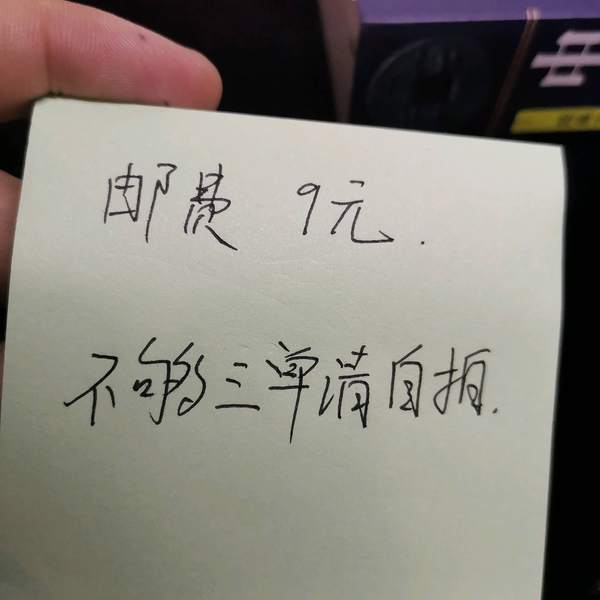 中
邮费 9元.
不够三单请自拍.